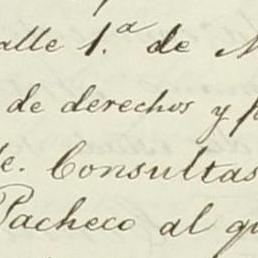 alle 1.ª de M
de derechos y f
te. Consultas
Pacheco al qu